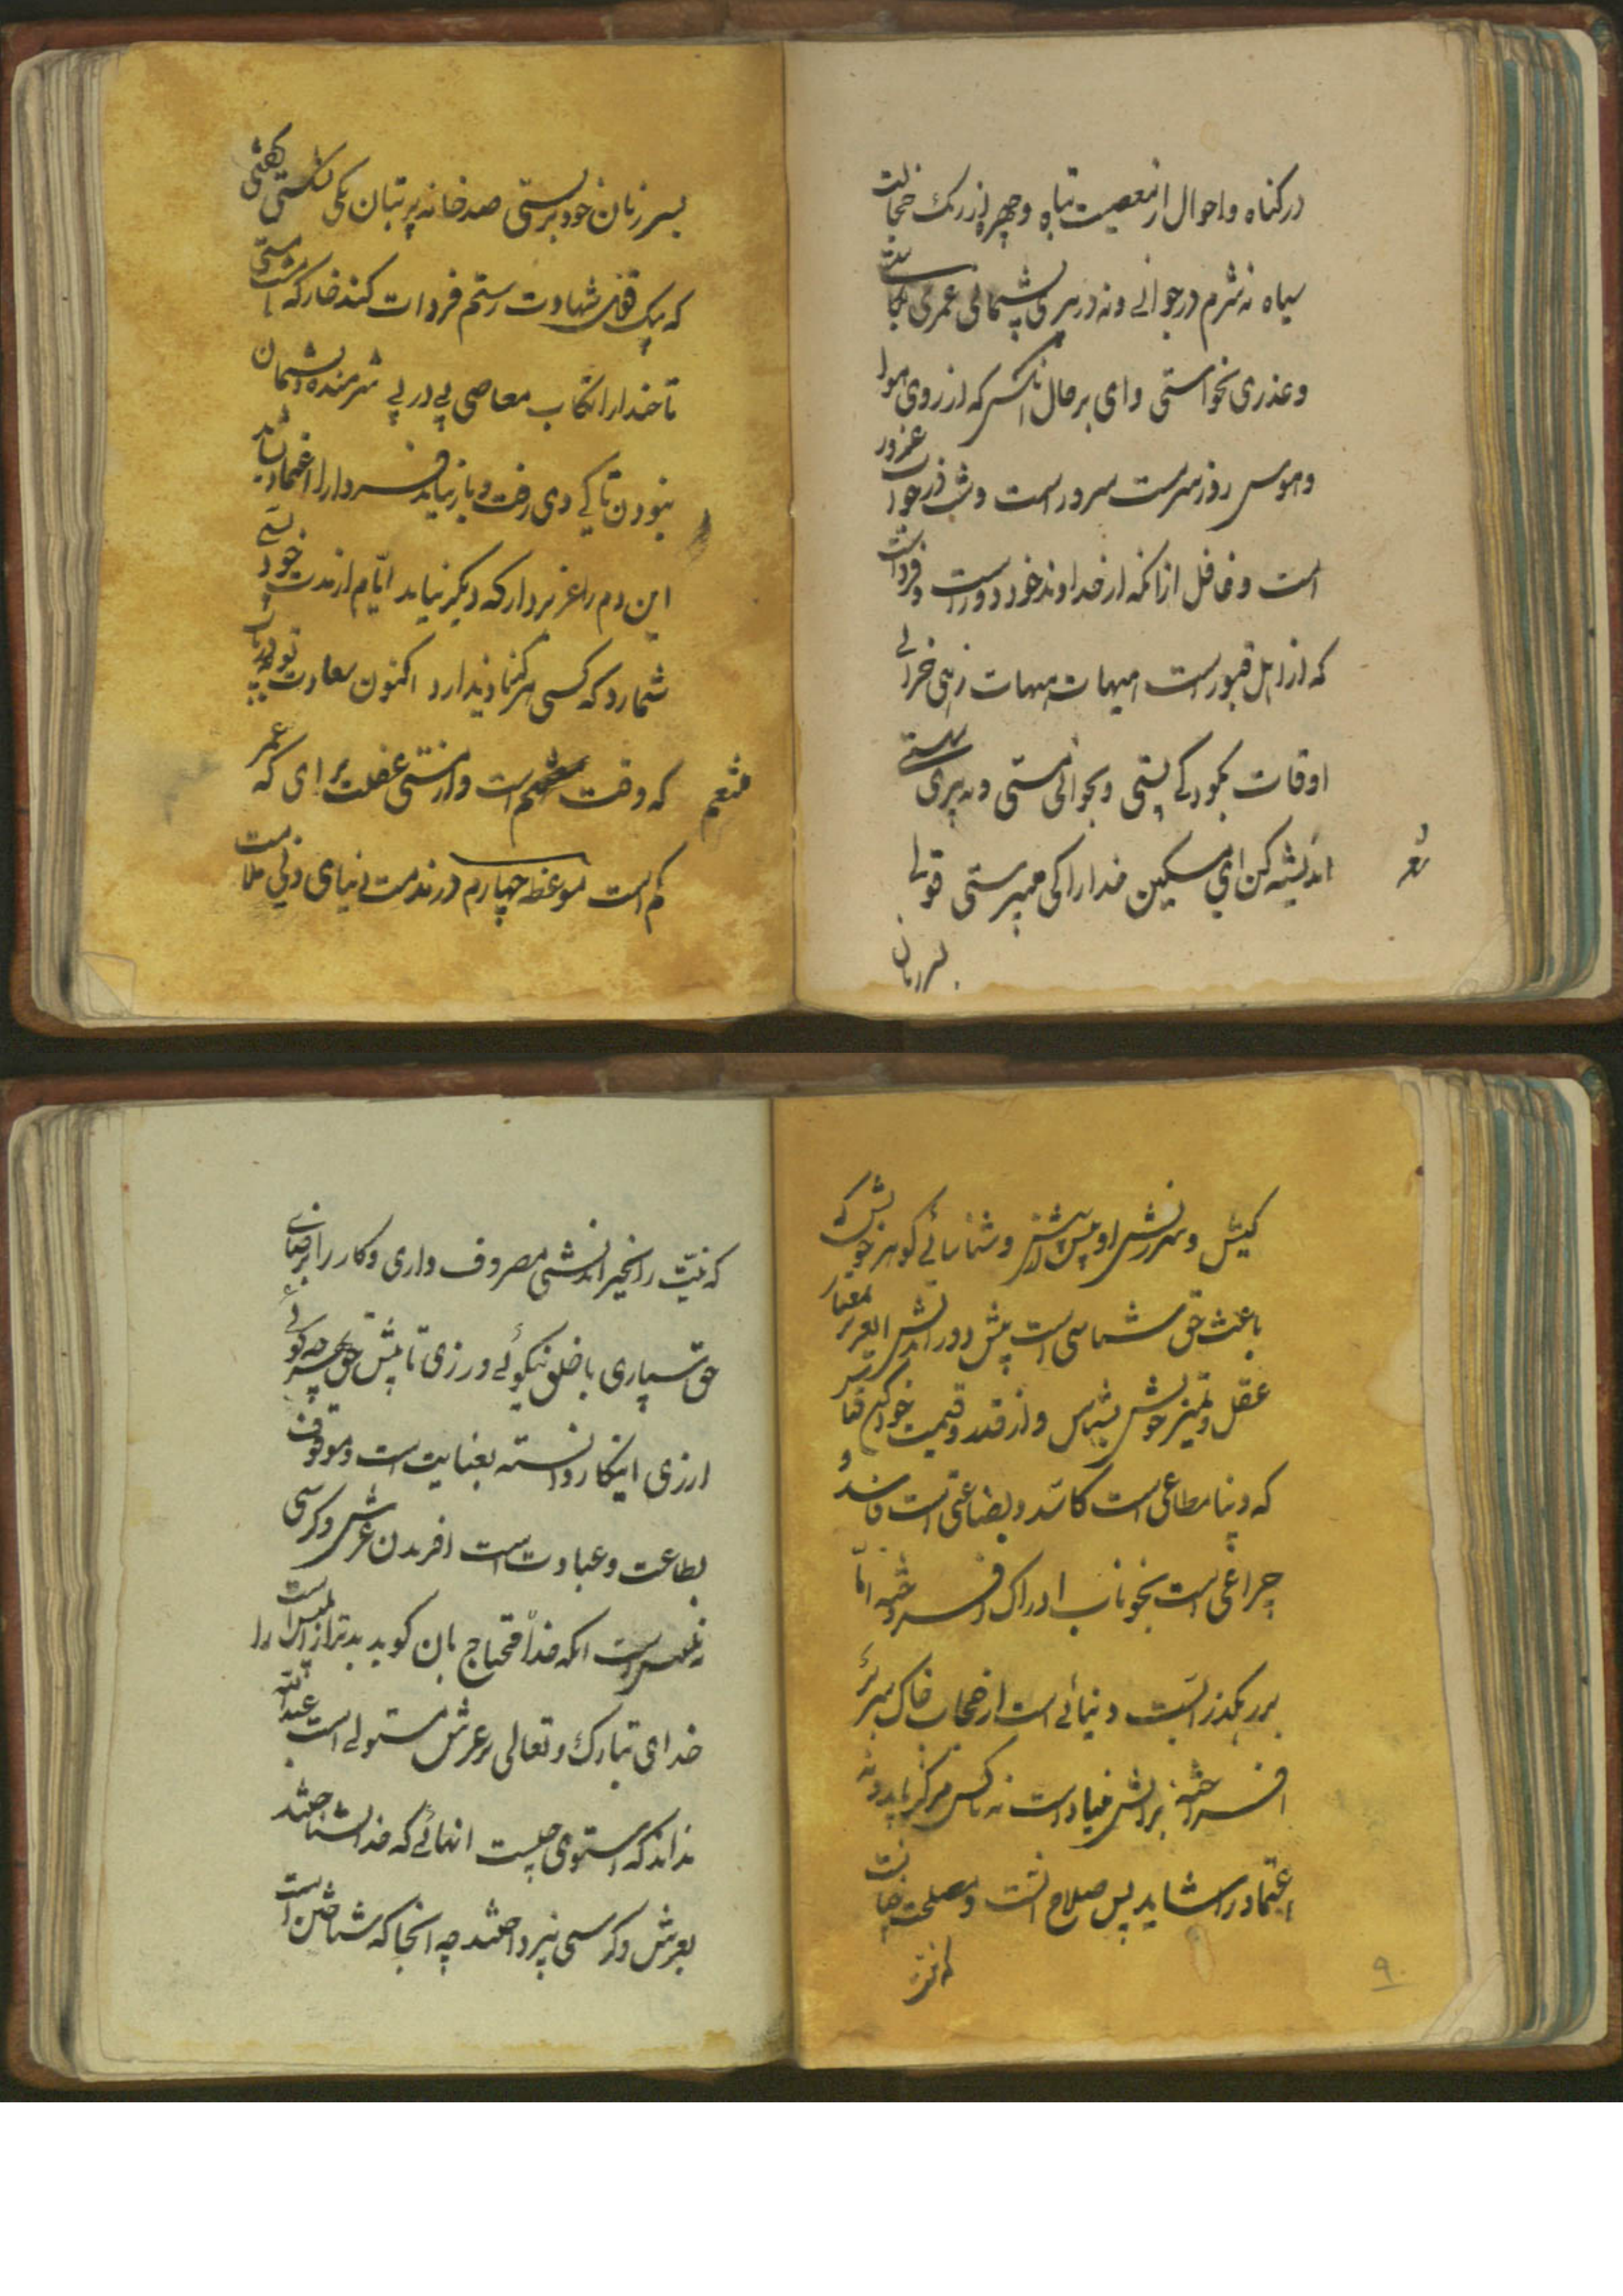 در گناه و احوال از معصیت تباه و چهره از زنگ خجالت
سیاه نه شرم در جوانی و نه در پیری پشیمانی عمری بکاستی
و عذری نخواستی وای بر حال آنکس که از روی هوا
و هوس روز سرمست سرور است و شب در خواب غرور
است و غافل از آنکه از خداوند خود دور است و فرداست
که از اهل قبور است هیهات هیهات زهی خرابی
اوقات بکودکی پستی و بجوانی مستی و به پیری سستی
شعر
اندیشه کن ای مسکین خدا را کی میپرستی قولی
بسر زبان
بسر زبان خود بربستی صد خانه پر بتان یکی نشکستی گفتی
که بیک قول شهادت رستم فردات کند خمار که مستی
تا چند ارتکاب معاصی پی در پی شرمنده و پشیمان
نبودن تا کی دی رفت و باز نیاید فردا را اعتماد نشاید
این دم را عزیز دار که دیگر نیاید ایام از مدت خود
شمارد که کسی هرگز اکنون سعادت
مغتنم
که وقت است و از مستی غفلت برای که عمر
کم است موعظه چهارم در مذمت دنیای دنی ملامت
کیش و سرزنش او بیش از پیش و شناسائی گوهر خویش که
باعث حق شناسی است پیش دوراندیش ای عزیز معیار
عقل و تمیز خویش بشناس و از قدر و قیمت خود کن قیاس
که دنیا متاعی است کاسد و بضاعتی است فاسد و
چراغی است بخوناب ادراک افروخته اما
بر رهگذر است دنیائی است از حجاب خاک سر بر
افراخته برآبش بنیاد است نه باکس هرگز پاید و نه
اعتماد را شاید پس صلاح آنست و مصلحت چنانست
که نیت
۹
که نیت را بخیراندیشی مصروف داری و کار را برضای
حق سپاری با خلق نیکوئی ورزی تا پیش حق بهر چه گوئی
ارزی اینکار وابسته بعنایت است و موقوف
بطاعت و عبادت است آفریدن عرش و کرسی
نه است آنکه خدا را محتاج بآن گوید بدتر از ابلیس است
خدای تبارک و تعالی بر عرش مستولی است
نداند که استوی چیست آنهائی که خدا شناختند
بعرش و کرسی نپرداختند چه آنجا که شناختن است